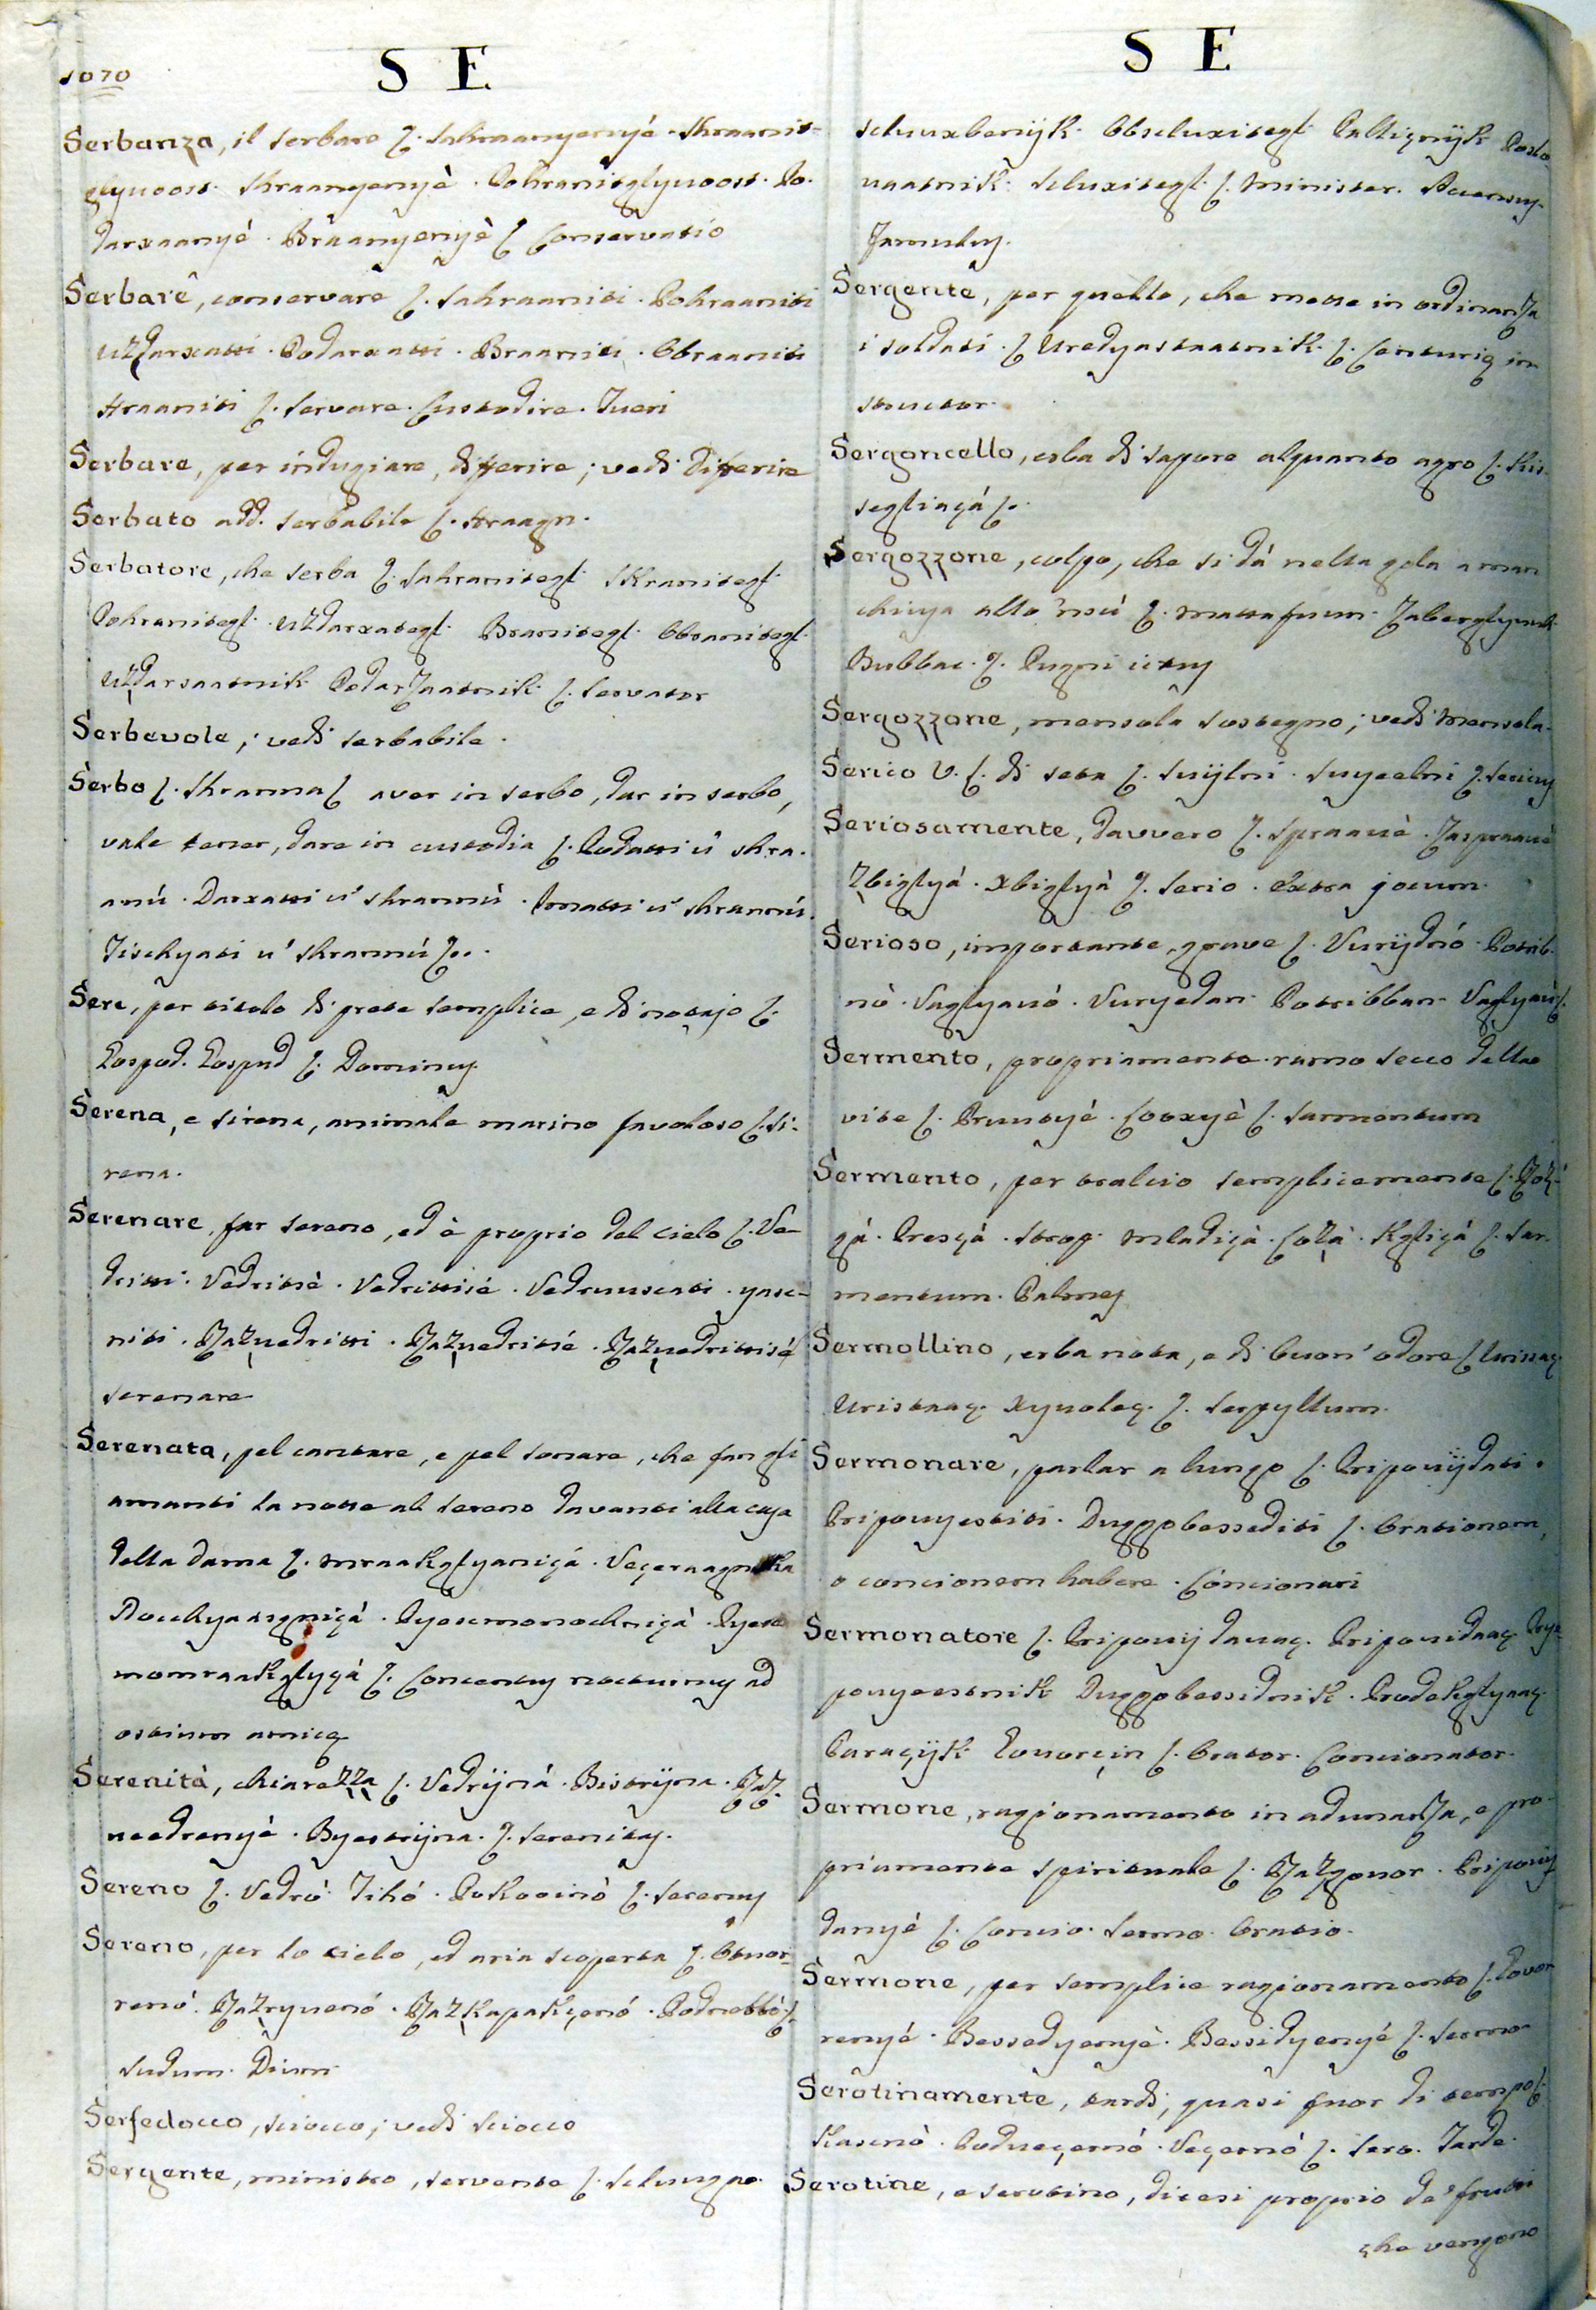 1070
S E
Serbanza, il serbare ſ. sahraanyenyé. shraanit-
glyvoost. shraanyenyè. Pohranitglyvoost. Po-
darxaanyé. Braanyenyè ſ Conservatio
Serbare, conservare ſ. sahraaniti. Pohraaniti
Uzdarxatti. Podarxatti. Braaniti. Obraaniti
Hraaniti ſ. servare. Custodire. Tueri
Serbare, per indugiare, differire; vedi Differire
Serbato add. serbabile ſ. Hraagn.
Serbatore, che serba ſ. sahranitegl. skranitegl.
Pohranitegl. Uzdarxategl. Branitegl. Obranitegl.
Uzdarsaatnik Podarzaatnik ſ. servator
Serbevole, vedi serbabile.
Serbo ſ. shranna ſ aver in serbo, dar in serbo,
vale tener, dare in custodia ſ. Podatti ù shra.
anù. Darxatti ù shrannù. Imatti ù shrannù.
Tischyati u' shrannú ſ.
Sere, per titolo di prete semplice, e di notajo ſ.
Gospod. Gospud ſ. Dominuſ
Serena, e sirena, animale marino favoloso ſ. si-
rena.
Serenare, far sereno, ed è proprio del cielo ſ. Ve-
dritti. Vedrittè. Vedrittisé. Vedruuscati. yasc-
niti. Razvedritti. Razvedritté. Razvedrittisé ſ
serenare
Serenata, pel cantare, e pel sonare, che fan gli
amanti la notte al sereno davanti alla casa
della dama ſ. mraakglyaniçá. Veçeraagnka
Noochyaargniçá. Pyesemonochniçà. Pyese
momraakglyçá ſ. Concentuſ nocturnuſ ad
ostium amicę
Serenità, chiarezza ſ. Vedrijná. Bistrijna. Raz-
veedrenyè. Byestrijna. ſ. serenitaſ.
Sereno ſ. Vedró. Tihó. Pokooinò ſ. serenuſ
Sereno, per lo cielo, ed aria scoperta ſ. Otvor-
renó. Razryvenó. Razkapakçenó. Podnebbò ſ.
sudum. Dium
Serfedocco, sciocco; vedi sciocco
Sergente, ministro, servente ſ. schuugpo.
S E
schuuxbenijk. Obscluxitegl. Palticnijk Posto-
vaatnik. Scluxitegl. ſ. Minister. Servuſ.
Famuluſ.
Sergente, per quello, che mette in ordinanza
i soldati. ſ Uredyastaatnik ſ. Centurię in
structor.
Sergoncello, erba di sapore alquanto agro ſ. Kis-
segliaçá ſ.
Sergozzone, colpo, che si dá nella gola a man
chiusa allo 'nsú ſ. massafuun. Zaberglyuuk
Bubbac. ſ. Pugni ictuſ
Sergozzone, mensola sostegno; vedi Mensola.
Serico V. ſ. di seta ſ. svijlni. svyeelni ſ. sericuſ
Seriosamente, davvero ſ. spraavè. Zaspraavè
Zbiglyá. xbiglyà ſ. serio. extra jocum.
Serioso, importante, grave ſ. Vurijdnó. Potrib-
nò. Vaglyanò. Vuryedan. Potribban. Vaglyan ſ.
Sermento, propriamente ramo secco della
vite ſ. Pruutyé. Looxyè ſ. sarmentum
Sermento, per tralcio semplicemente ſ. Roz-
gá. Presçá. strop. mladiçà. Loza. Kgliçá ſ. sar-
mentum. Palmeſ
Sermollino, erba nota, e di buon' odore ſ Urissaç
Uristaaç. Xyvoleç. ſ. serpyllum.
Sermonare, parlar a lungo ſ. Pripovijdati.
Pripovyestiti. Duggobesseditti ſ. Orationem,
o concionem habere. Concionari
Sermonatore ſ. Pripovijdavaç. Pripovidaaç Prye-
povyeestnik Duggobessidnik. Prodekglyaaç
Paraçijk. Govorcin ſ. Orator. Concionator.
Sermone, ragionamento in adunanza, e pro-
priamente spirituale ſ. Razgovor. Pripovij
danyé ſ. Concio. sermo. Oratio.
Sermone, per semplice ragionamento ſ. Govor
renyé. Bessedyenyè. Bessidyenyé ſ. sermo.
Serotinamente, tardi, quasi fuor di tempo ſ.
Kascnò. Podveçernó. Veçernó ſ. sero. Tarde.
Serotine, e serotino, dicesi proprio de' frutti
che vengono